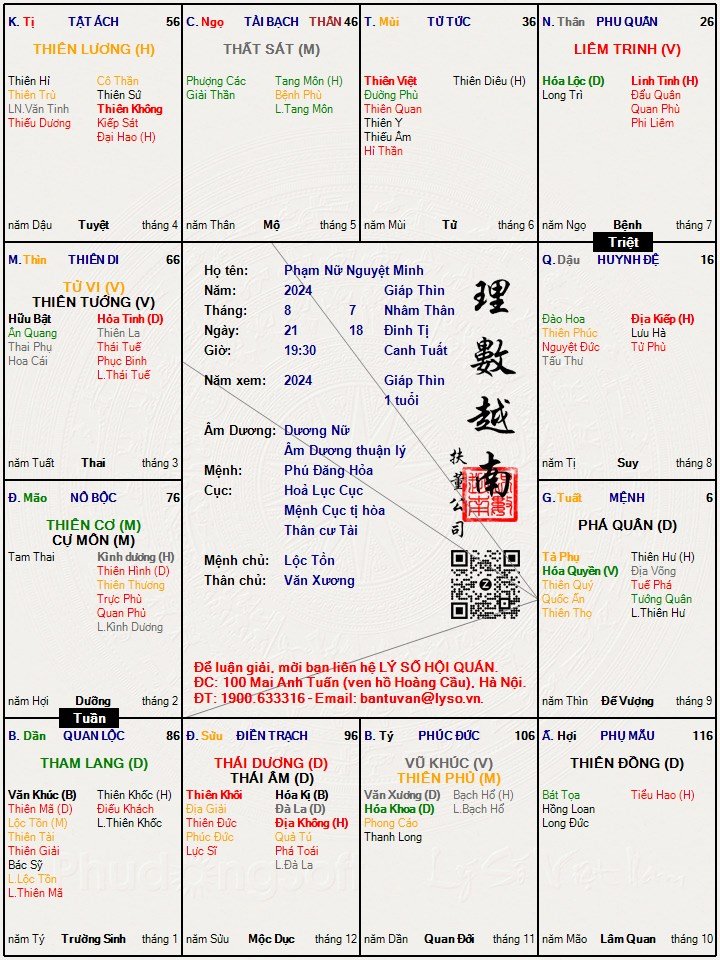 K. Tị TẬT ÁCH 56
THIÊN LƯƠNG (H)
Thiên Hỉ Cô Thần
Thiên Trù Thiên Sứ
LN.Văn Tinh Thiên Không
Thiếu Dương Kiếp Sát
Đại Hao (H)
năm Dậu Tuyệt tháng 4
C. Ngọ TÀI BẠCH THÂN 46
THẤT SÁT (M)
Phượng Các Tang Môn (H)
Giải Thần Bệnh Phù
L.Tang Môn
năm Thân Mộ tháng 5
T. Mùi TỬ TỨC 36
Thiên Việt Thiên Diêu (H)
Đường Phù
Thiên Quan
Thiên Y
Thiếu Âm
Hỉ Thần
năm Mùi Tử tháng 6
N. Thân PHU QUÂN 26
LIÊM TRINH (V)
Hóa Lộc (D) Linh Tinh (H)
Long Trì Đẩu Quân
Quan Phù
Phi Liêm
năm Ngọ Bệnh tháng 7
Triệt
M. Thìn THIÊN DI 66
TỬ VI (V)
THIÊN TƯỚNG (V)
Hữu Bật Hỏa Tinh (D)
Ân Quang Thiên La
Thai Phụ Thái Tuế
Hoa Cái Phục Binh
L.Thái Tuế
năm Tuất Thai tháng 3
Họ tên: Phạm Nữ Nguyệt Minh
Năm: 2024 Giáp Thìn
Tháng: 8 7 Nhâm Thân
Ngày: 21 18 Đinh Tị
Giờ: 19:30 Canh Tuất
Năm xem: 2024 Giáp Thìn
1 tuổi
Âm Dương: Dương Nữ
Âm Dương thuận lý
Mệnh: Phú Đăng Hỏa
Cục: Hoả Lục Cục
Mệnh Cục tị hòa
Thân cư Tài
Mệnh chủ: Lộc Tồn
Thân chủ: Văn Xương
理數越南
扶董公司
Để luận giải, mời bạn liên hệ LÝ SỐ HỘI QUÁN.
ĐC: 100 Mai Anh Tuấn (ven hồ Hoàng Cầu), Hà Nội.
ĐT: 1900.633316 - Email: bantuvan@lyso.vn.
Q. Dậu HUYNH ĐỆ 16
Đào Hoa Địa Kiếp (H)
Thiên Phúc Lưu Hà
Nguyệt Đức Tử Phù
Tấu Thư
năm Tị Suy tháng 8
Đ. Mão NÔ BỘC 76
THIÊN CƠ (M)
CỰ MÔN (M)
Tam Thai Kình dương (H)
Thiên Hình (D)
Thiên Thương
Trực Phù
Quan Phủ
L.Kình Dương
năm Hợi Dưỡng tháng 2
Tuần
G. Tuất MỆNH 6
PHÁ QUÂN (D)
Tả Phụ Thiên Hư (H)
Hóa Quyền (V) Địa Võng
Thiên Quý Tuế Phá
Quốc Ấn Tướng Quân
Thiên Thọ L.Thiên Hư
năm Thìn Đế Vượng tháng 9
B. Dần QUAN LỘC 86
THAM LANG (D)
Văn Khúc (B) Thiên Khốc (H)
Thiên Mã (D) Điếu Khách
Lộc Tồn (M) L.Thiên Khốc
Thiên Tài
Thiên Giải
Bác Sỹ
L.Lộc Tồn
L.Thiên Mã
năm Tý Trường Sinh tháng 1
Đ. Sửu ĐIỀN TRẠCH 96
THÁI DƯƠNG (D)
THÁI ÂM (D)
Thiên Khôi Hóa Kị (B)
Địa Giải Đà La (D)
Thiên Đức Địa Không (H)
Phúc Đức Quả Tú
Lực Sĩ Phá Toái
L.Đà La
năm Sửu Mộc Dục tháng 12
B. Tý PHÚC ĐỨC 106
VŨ KHÚC (V)
THIÊN PHỦ (M)
Văn Xương (D) Bạch Hổ (H)
Hóa Khoa (D) L.Bạch Hổ
Phong Cáo
Thanh Long
năm Dần Quan Đới tháng 11
Ấ. Hợi PHỤ MẪU 116
THIÊN ĐỒNG (D)
Bát Tọa Tiểu Hao (H)
Hồng Loan
Long Đức
năm Mão Lâm Quan tháng 10
Lý Số Việt Nam